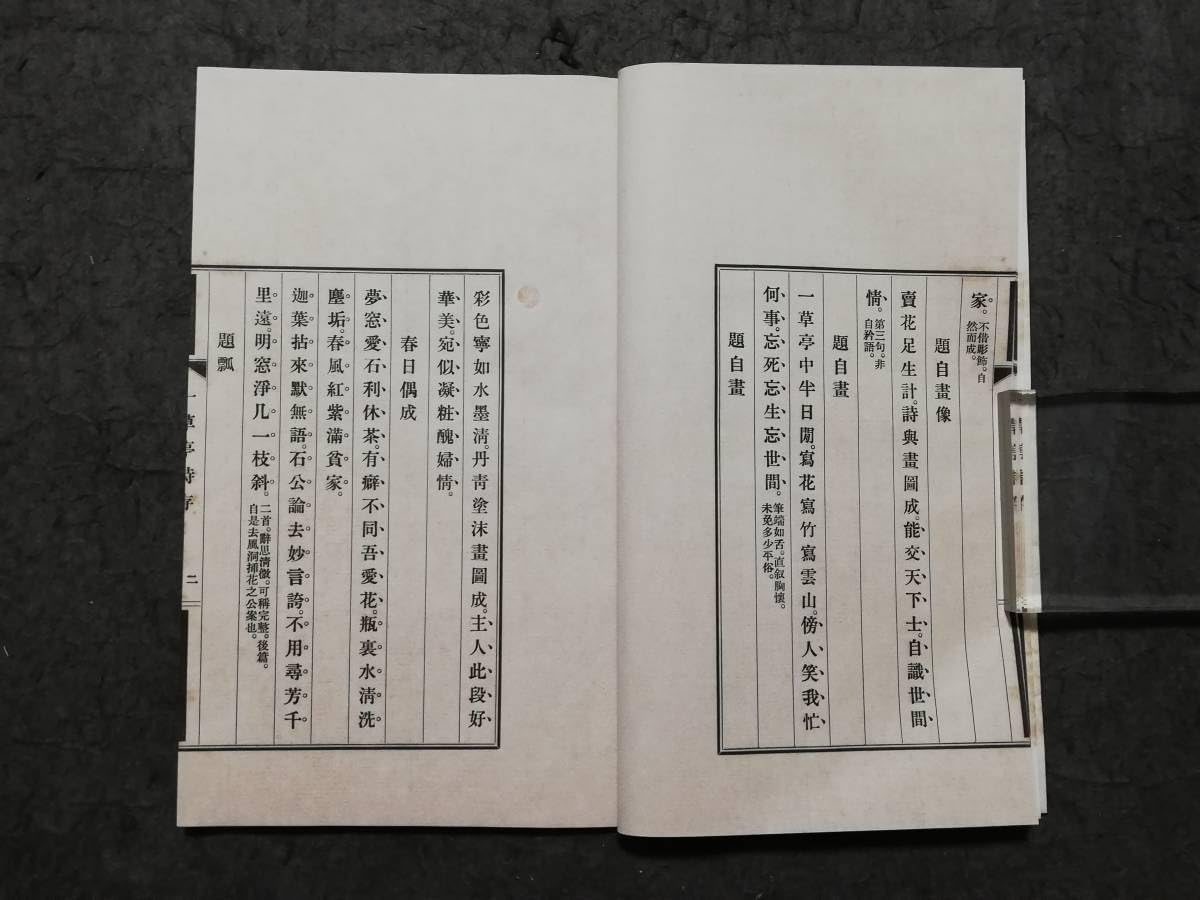 家。不借彫飾。自
然而成。
題自畫像
賣花足生計。詩與畫圖成。能交天下士。自識世間
情。第三句。非
自矜語。
題自畫
一草亭中半日閒。寫花寫竹寫雲山。傍人笑我忙
何事。忘死忘生忘世間。筆端如舌。直叙胸懷。
未免多少平俗。
題自畫
彩色寧如水墨淸。丹靑塗沫畫圖成。主人此段好
華美。宛似凝粧醜婦情。
春日偶成
夢窓愛石利休茶。有癖不同吾愛花。瓶裏水淸洗
塵垢。春風紅紫滿貧家。
迦葉拈來默無語。石公論去妙言誇。不用尋芳千
里遠。明窓淨几一枝斜。二首。辭思淸微。可稱完整。後篇。
自是去風洞揷花之公案也。
題瓢
一草亭詩存
二